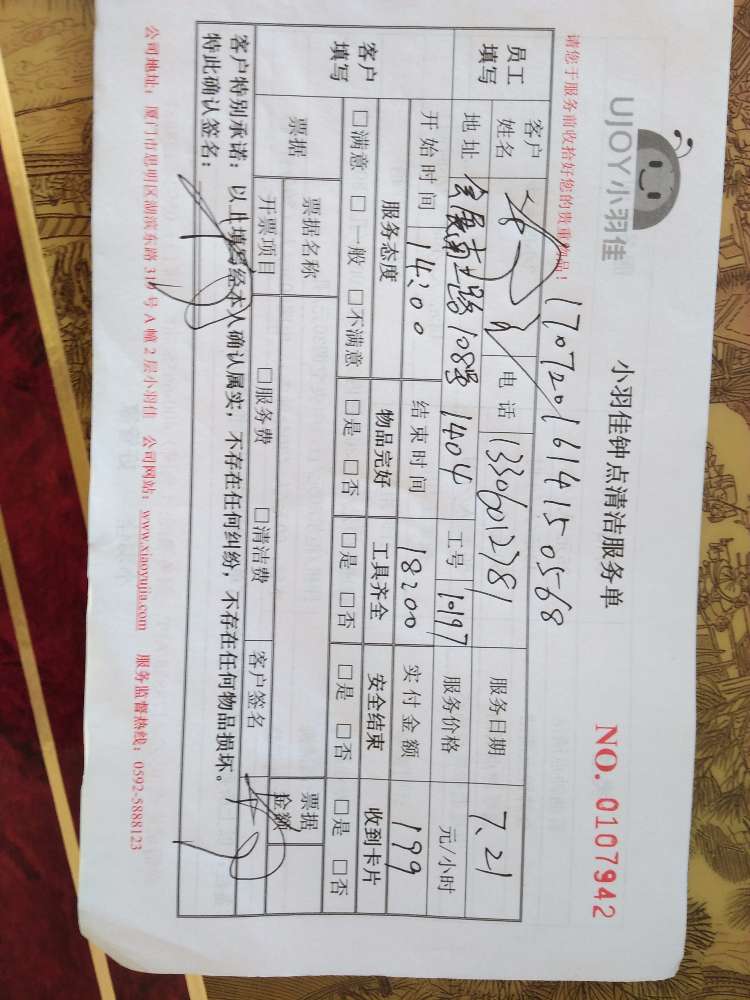 UJOY小羽佳
小羽佳钟点清洁服务单
NO. 0107942
请您于服务前收拾好您的贵重物品！
1707201614150568
员工填写
客户姓名
电话 13306012781
服务日期 7.21
地址 会展南五路108号1404
工号 10197
服务价格 元/小时
开始时间 14:00
结束时间 18:00
实付金额 199
客户填写
服务态度 物品完好 工具齐全 安全结束 收到卡片
□满意 □一般 □不满意 □是 □否 □是 □否 □是 □否 □是 □否
票据
票据名称
票据金额
开票项目 □服务费 □清洁费
客户签名
客户特别承诺：以上填写经本人确认属实，不存在任何纠纷，不存在任何物品损坏。
特此确认签名：
公司地址：厦门市思明区湖滨东路319号A幢2层小羽佳 公司网站：www.xiaoyujia.com 服务监督热线：0592-5888123